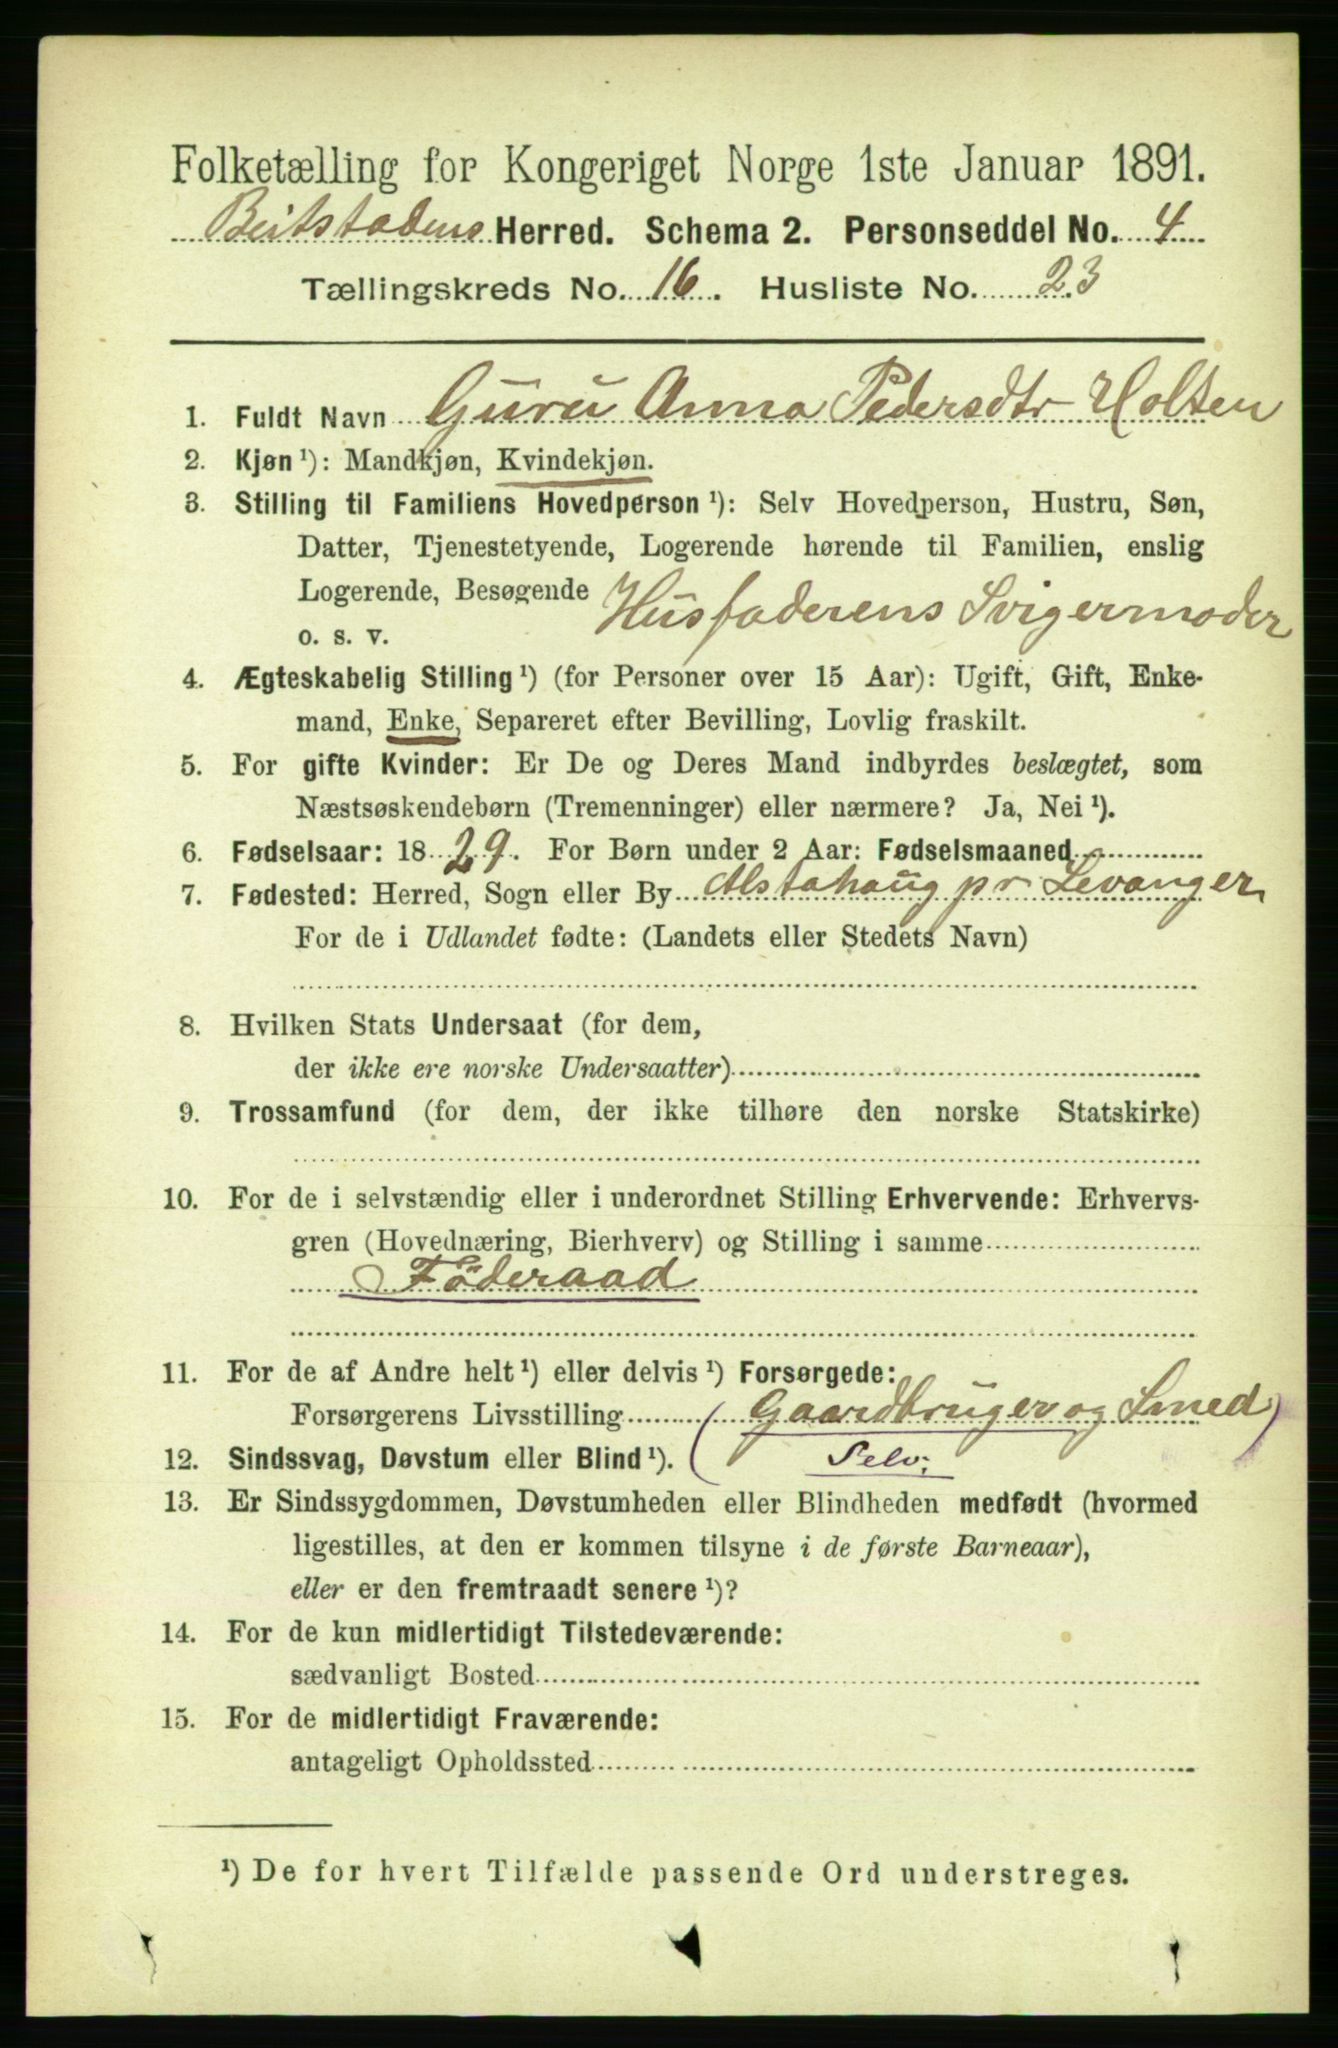 Folketælling for Kongeriget Norge 1ste Januar 1891.
Beitstadens Herred. Schema 2. Personseddel No. 4
Tællingskreds No. 16. Husliste No. 23
1. Fuldt Navn Guru Anna Pedersdtr Holten
2. Kjøn ¹): Mandkjøn, Kvindekjøn.
3. Stilling til Familiens Hovedperson ¹): Selv Hovedperson, Hustru, Søn,
Datter, Tjenestetyende, Logerende hørende til Familien, enslig
Logerende, Besøgende Husfaderens Svigermoder
o. s. v.
4. Ægteskabelig Stilling ¹) (for Personer over 15 Aar): Ugift, Gift, Enke-
mand, Enke, Separeret efter Bevilling, Lovlig fraskilt.
5. For gifte Kvinder: Er De og Deres Mand indbyrdes beslægtet, som
Næstsøskendebørn (Tremenninger) eller nærmere? Ja, Nei ¹).
6. Fødselsaar: 1829. For Børn under 2 Aar: Fødselsmaaned
7. Fødested: Herred, Sogn eller By Alstahoug pr Levanger
For de i Udlandet fødte: (Landets eller Stedets Navn)
8. Hvilken Stats Undersaat (for dem,
der ikke ere norske Undersaatter)
9. Trossamfund (for dem, der ikke tilhøre den norske Statskirke)
10. For de i selvstændig eller i underordnet Stilling Erhvervende: Erhvervs-
gren (Hovednæring, Bierhverv) og Stilling i samme
Föderaad
11. For de af Andre helt ¹) eller delvis ¹) Forsørgede:
Forsørgerens Livsstilling (Gaardbruger og Smed)
12. Sindssvag, Døvstum eller Blind ¹). ( Selv.
13. Er Sindssygdommen, Døvstumheden eller Blindheden medfødt (hvormed
ligestilles, at den er kommen tilsyne i de første Barneaar),
eller er den fremtraadt senere ¹)?
14. For de kun midlertidigt Tilstedeværende:
sædvanligt Bosted
15. For de midlertidigt Fraværende:
antageligt Opholdssted
¹) De for hvert Tilfælde passende Ord understreges.